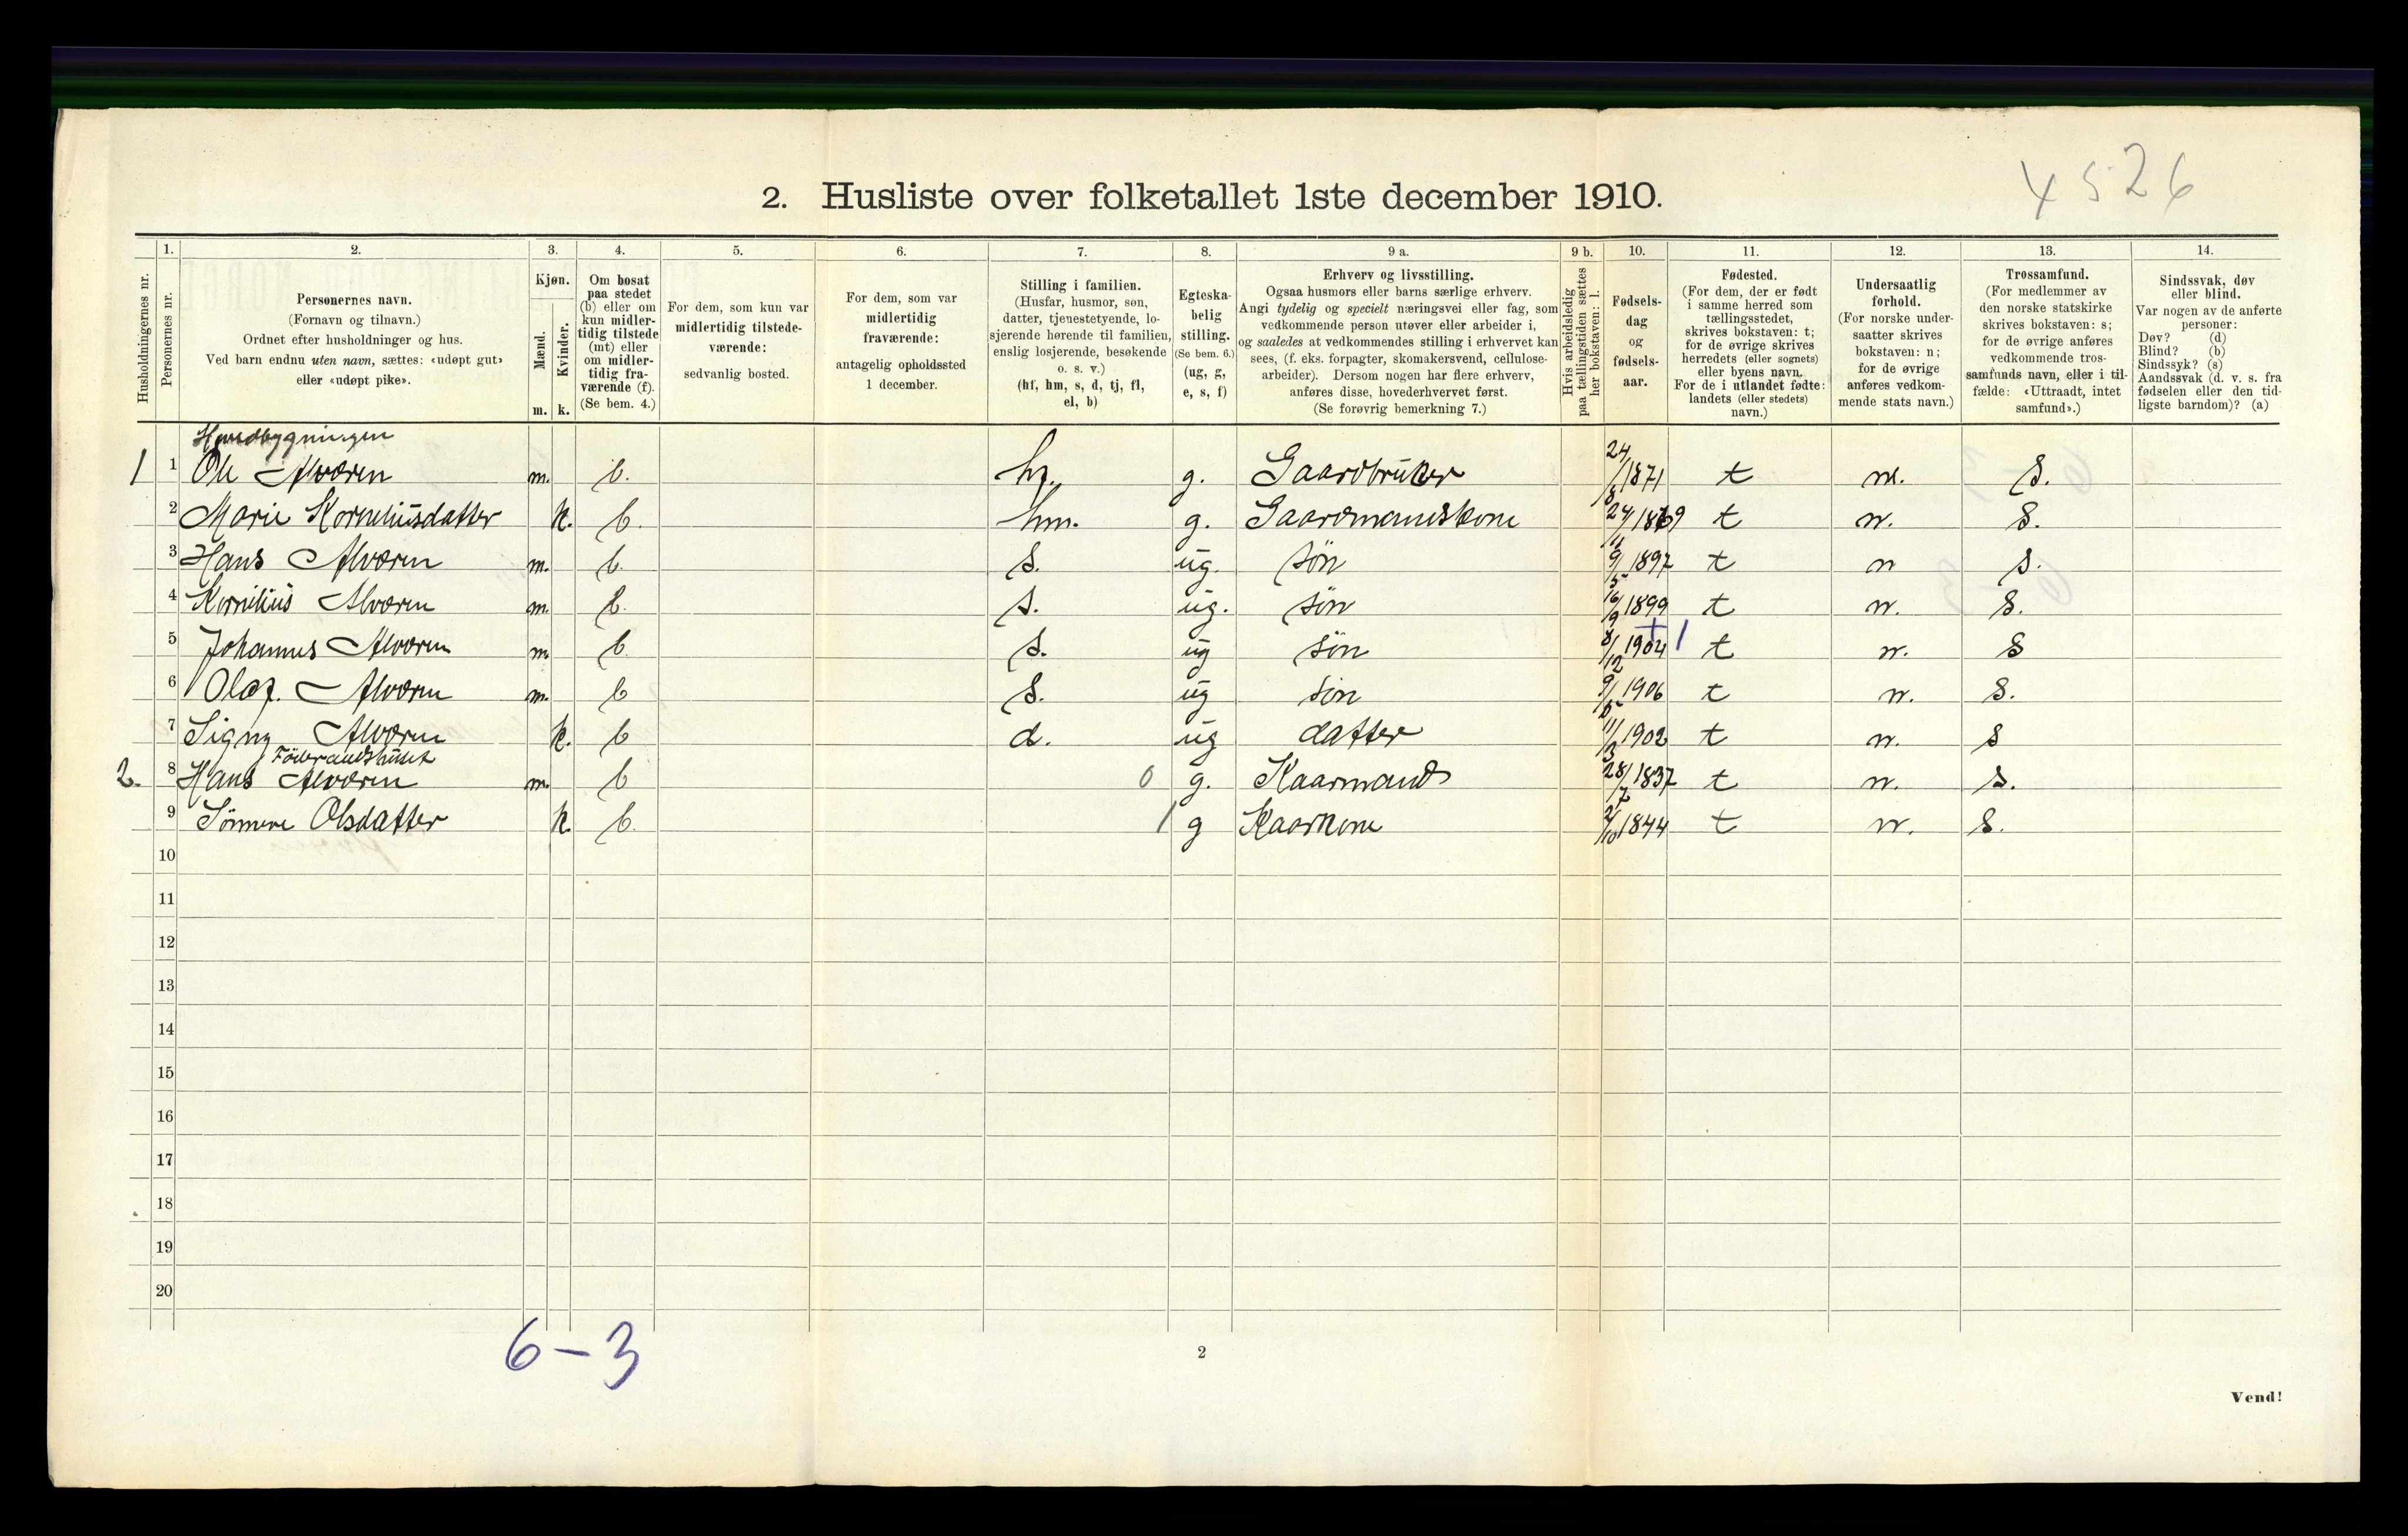 4526
2. Husliste over folketallet 1ste december 1910.
Husholdningernes nr.
1.
Personernes nr.
2.
Personernes navn.
(Fornavn og tilnavn.)
Ordnet efter husholdninger og hus.
Ved barn endnu uten navn, sættes: «udøpt gut»
eller «udøpt pike».
3.
Kjøn.
Mænd.
Kvinder.
m. k.
4.
Om bosat
paa stedet
(b) eller om
kun midler-
tidig tilstede
(mt) eller
om midler-
tidig fra-
værende (f).
(Se bem. 4.)
5.
For dem, som kun var
midlertidig tilstede-
værende:
sedvanlig bosted.
6.
For dem, som var
midlertidig
fraværende:
antagelig opholdssted
1 december.
7.
Stilling i familien.
(Husfar, husmor, søn,
datter, tjenestetyende, lo-
sjerende hørende til familien,
enslig losjerende, besøkende
o. s. v.)
(hf, hm, s, d, tj, fl,
el, b)
8.
Egteska-
belig
stilling.
(Se bem. 6.)
(ug, g,
e, s, f)
9 a.
Erhverv og livsstilling.
Ogsaa husmors eller barns særlige erhverv.
Angi tydelig og specielt næringsvei eller fag, som
vedkommende person utøver eller arbeider i,
og saaledes at vedkommendes stilling i erhvervet kan
sees, (f. eks. forpagter, skomakersvend, cellulose-
arbeider). Dersom nogen har flere erhverv,
anføres disse, hovederhvervet først.
(Se forøvrig bemerkning 7.)
9 b.
Hvis arbeidsledig
paa tællingstiden sættes
her bokstaven: l.
10.
Fødsels-
dag
og
fødsels-
aar.
11.
Fødested.
(For dem, der er født
i samme herred som
tællingsstedet,
skrives bokstaven: t;
for de øvrige skrives
herredets (eller sognets)
eller byens navn.
For de i utlandet fødte:
landets (eller stedets)
navn.)
12.
Undersaatlig
forhold.
(For norske under-
saatter skrives
bokstaven: n;
for de øvrige
anføres vedkom-
mende stats navn.)
13.
Trossamfund.
(For medlemmer av
den norske statskirke
skrives bokstaven: s;
for de øvrige anføres
vedkommende tros-
samfunds navn, eller i til-
fælde: «Uttraadt, intet
samfund».)
14.
Sindssvak, døv
eller blind.
Var nogen av de anførte
personer:
Døv? (d)
Blind? (b)
Sindssyk? (s)
Aandssvak (d. v. s. fra
fødselen eller den tid-
ligste barndom)? (a)
Hovedbygningen
1 1 Ole Alværen m. b. hf. g. Gaardbruker 24/8 1871 t n. S.
2 Marie Korneliusdatter k. b. hm. g. Gaardmandskone 24/11 1869 t n. S.
3 Hans Alværen m. b. S. ug. søn 9/5 1897 t n s.
4 Kornilius Alværen m. b. s. ug. søn 16/9 1899 t n. S.
5 Johannes Alværen m. b. s. ug søn 8/12 1904 1 t n. S
6 Olaf. Alværen m. b S. ug søn 9/5 1906 t n. S.
7 Signy Alværen k. b d. ug datter 11/3 1902 t n. S
Föderaadshuset
2. 8 Hans Alværen m. b 0 g. Kaarmand 28/7 1837 t n. s.
9 Olsdatter k. b. 1 g Kaarkone 2/10 1844 t n. S.
10
11
12
13
14
15
16
17
18
19
20
6-3
2
Vend!